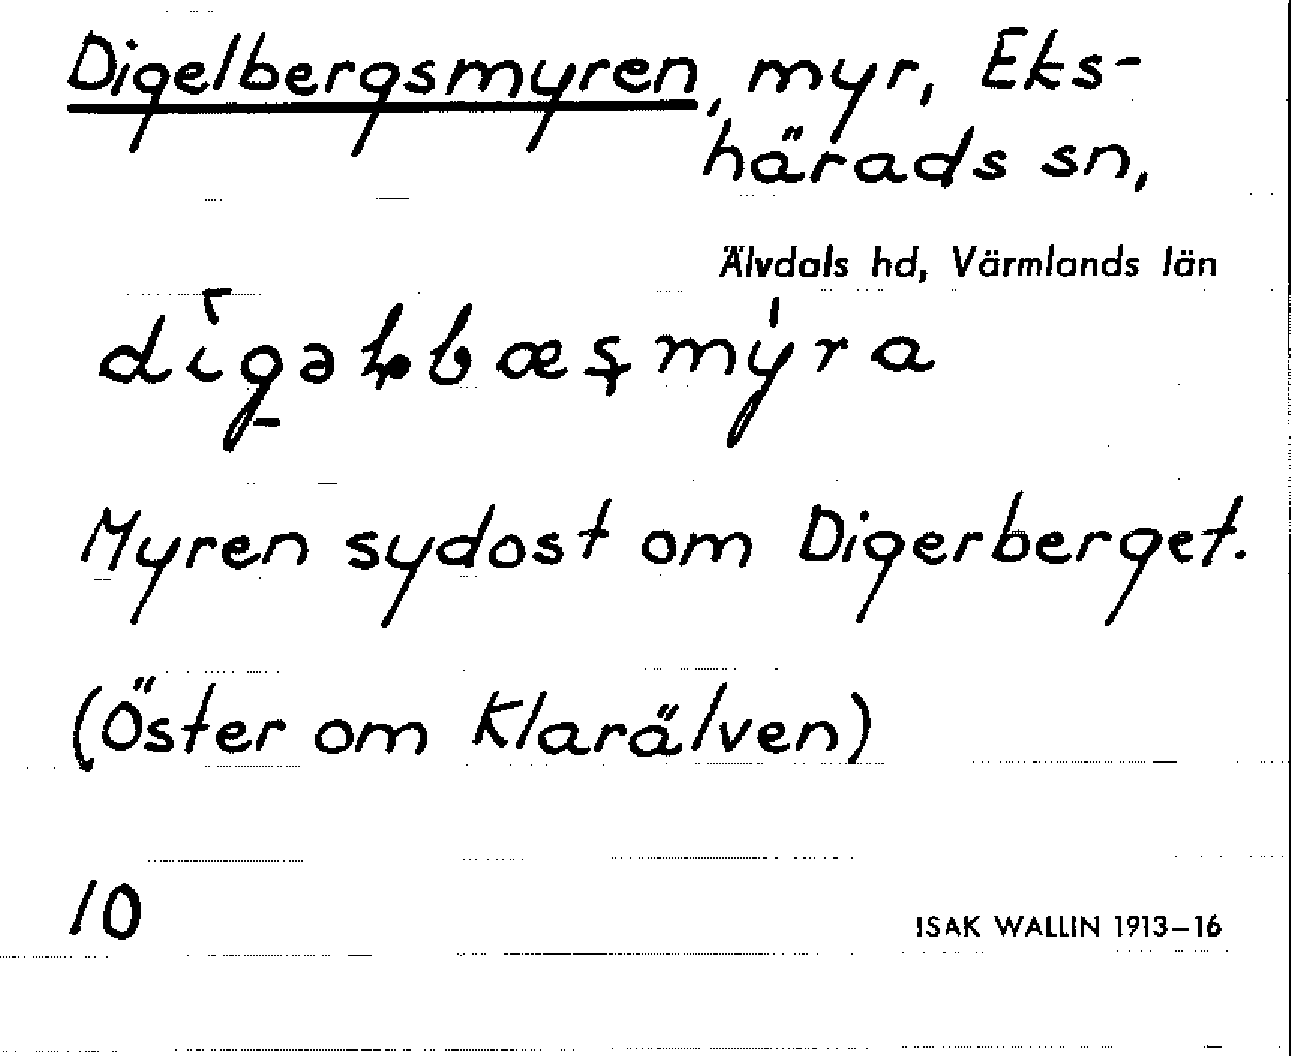 Digelbergsmyren, myr, Eks-
härads sn,
Älvdals hd, Värmlands län
Myren sydost om Digerberget.
(Öster om Klarälven)
10
ISAK WALLIN 1913–16